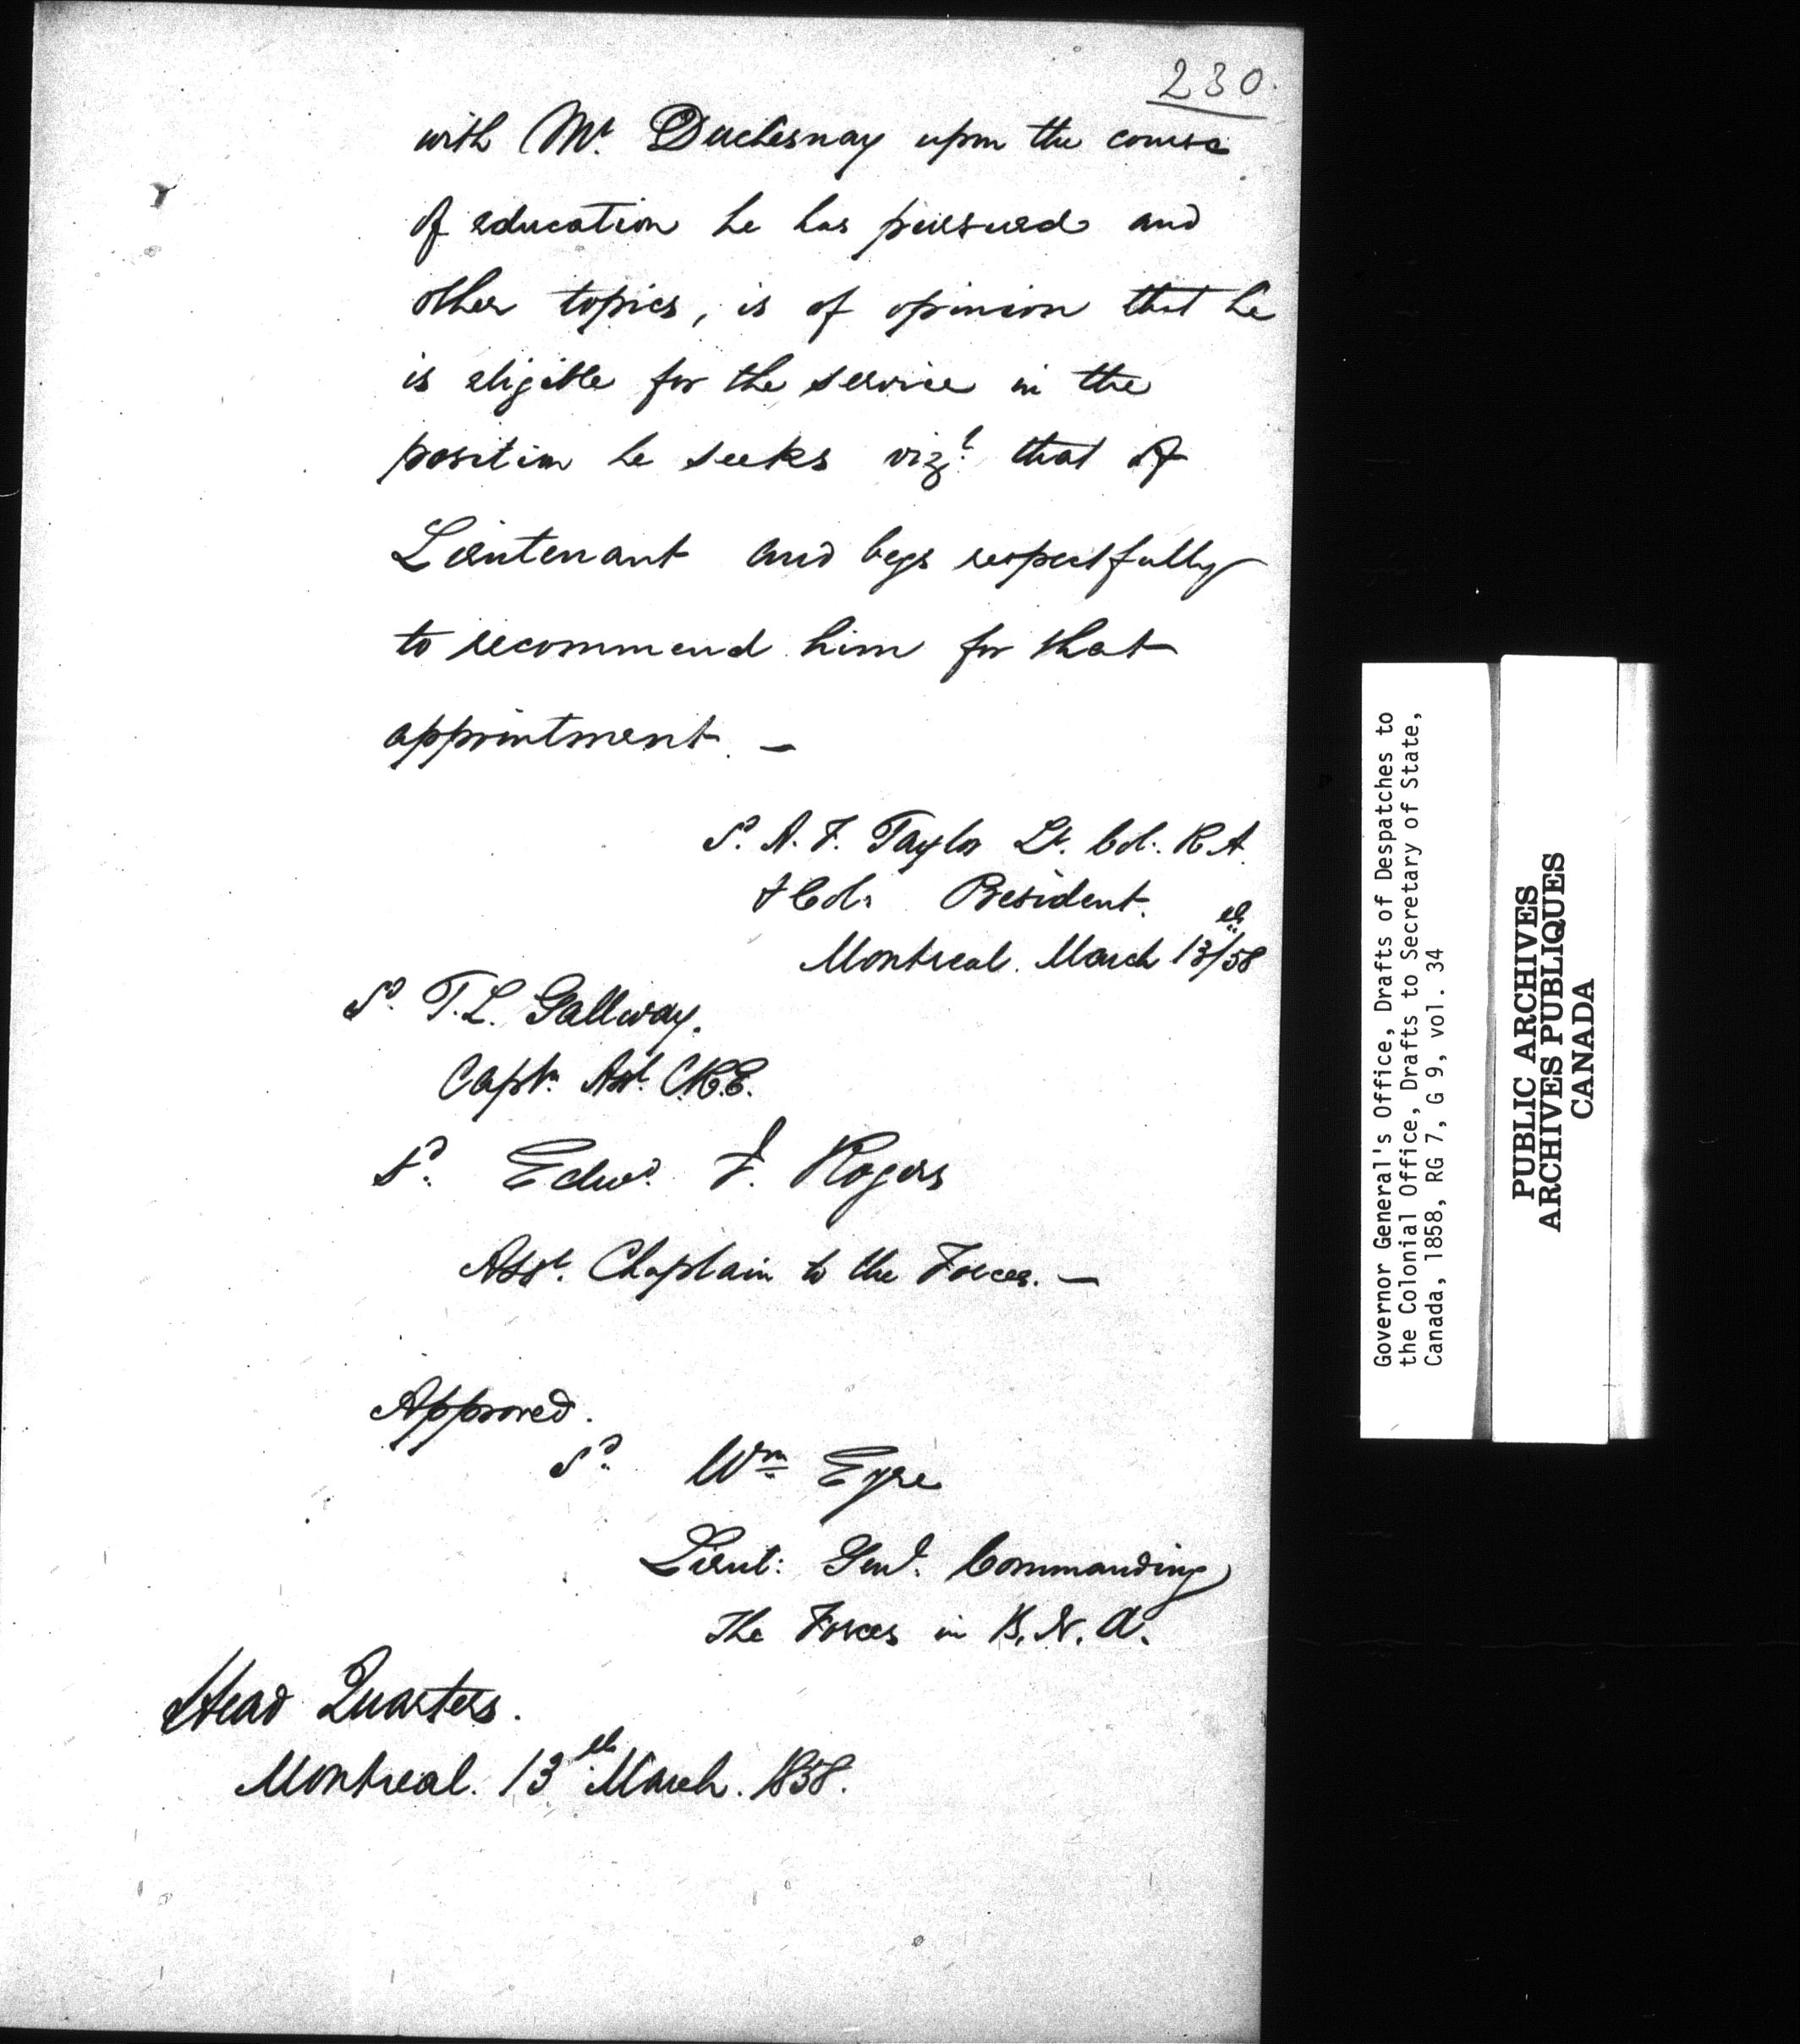 230.
with Mr. Duchesnay upon the course
of education he has pursued and
other topics, is of opinion that he
is eligible for the service in the
position he seeks vizt. that of
Lieutenant and begs respectfully
to recommend him for that
appointment. —
Sd. A. F. Taylor Lt. Col. R A.
& Col. President.
Montreal. March 13th/58
Sd. T. L. Gallwey.
Captn. Asst. C.R.E.
Sd. Edwd. J. Rogers
Asst. Chaplain to the Forces. —
Approved.
Sd. Wm Eyre
Lieut: Genl. Commanding
The Forces in B. N. A.
Head Quarters.
Montreal. 13th March. 1858.
Governor General's Office, Drafts of Despatches to
the Colonial Office, Drafts to Secretary of State,
Canada, 1858, RG 7, G 9, vol. 34
PUBLIC ARCHIVES
ARCHIVES PUBLIQUES
CANADA